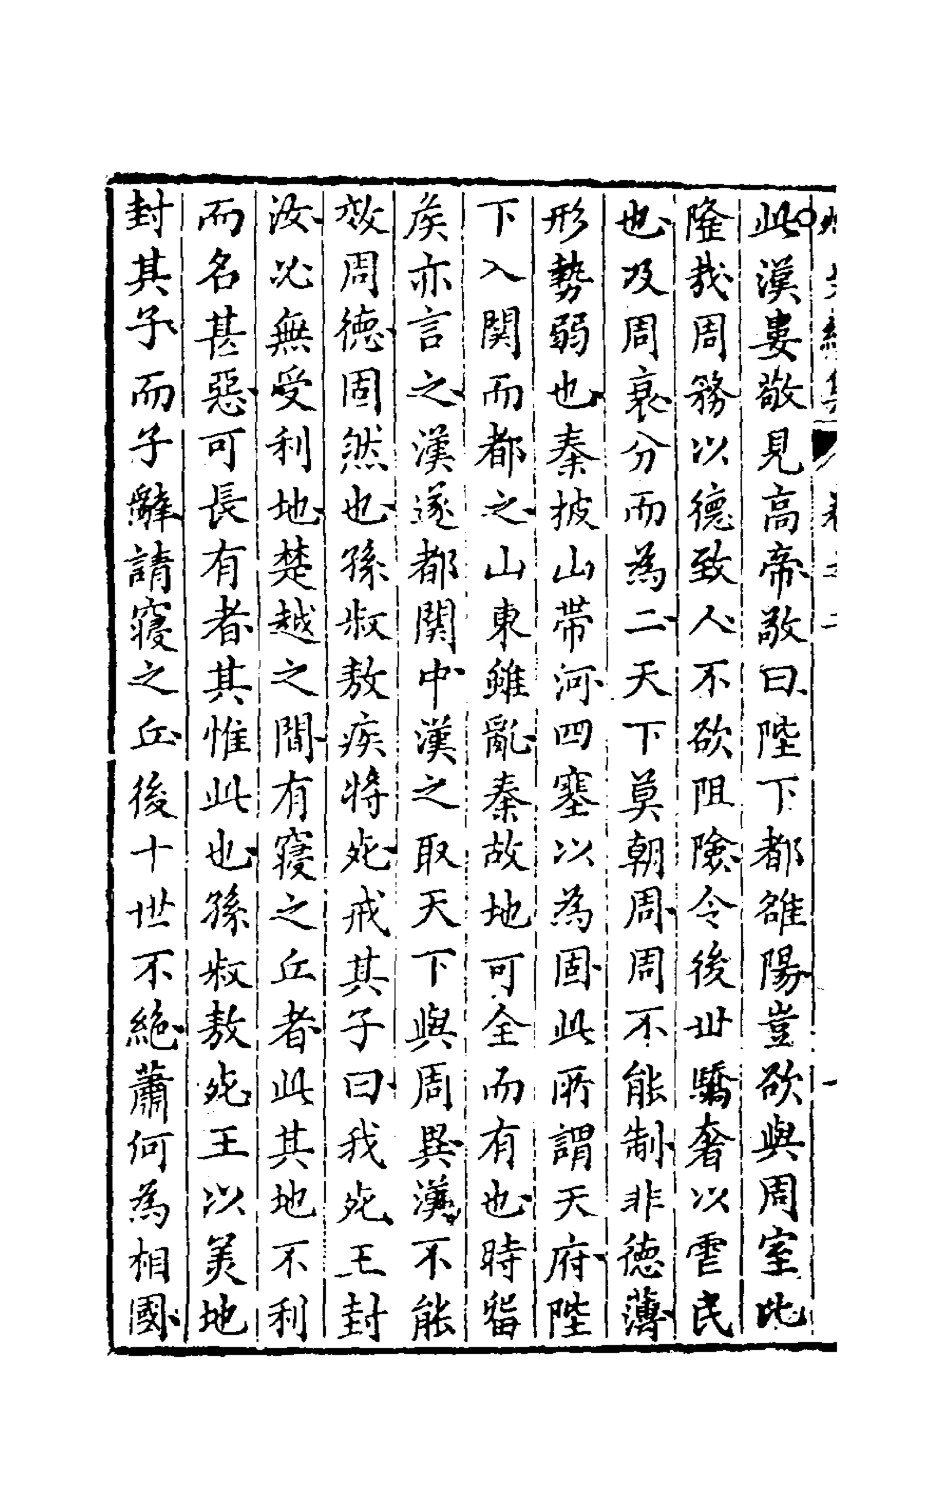 此漢婁敬見高帝敬曰陛下都雒陽豈欲與周室比
隆哉周務以德致人不欲阻險令後世驕奢以虐民
也及周衰分而為二天下莫朝周周不能制非德薄
形勢弱也秦披山帶河四塞以為固此所謂天府陛
下入関而都之山東雖亂秦故地可全而有也時留
矦亦言之漢遂都関中漢之取天下與周異漢不能
效周德固然也孫叔敖疾將死戒其子曰我死王封
汝必無受利地楚越之間有寢之丘者此其地不利
而名甚惡可長有者其惟此也孫叔敖死王以美地
封其子而子辭請寢之丘後十世不絶蕭何為相國